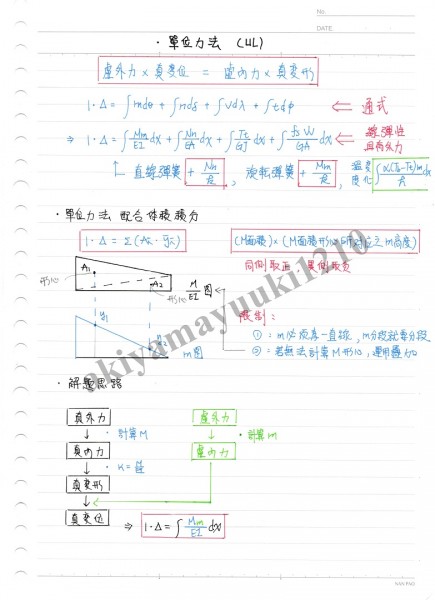 No.
DATE
・單位力法 (UL)
虛外力 × 真變位 = 虛內力 × 真變形
1·Δ = ∫mdθ + ∫ndδ + ∫vdλ + ∫tdφ ⇐ 通式
⇒ 1·Δ = ∫Mm/EI dx + ∫Nn/EA dx + ∫Tt/GJ dx + ∫fsVv/GA dx ⇐ 線彈性
且有外力
直線彈簧 + Nn/k , 旋転彈簧 + Mm/k , 溫度變化
・單位力法 配合体積積分
1·Δ = Σ(Ai·yi)
(M面積)×(M面積形心所對應之m高度)
同側取正,異側取負
形心
A1
A2
形心
M/EI 圖
y1
y2
m 圖
限制:
①:m必須為一直線,m分段就要分段
②:若無法計算M形心,運用疊加
・解題思路
真外力
虛外力
・計算M
・計算m
真內力
虛內力
真變形
真變位 ⇒ 1·Δ = ∫Mm/EI dx
akiyamayuuki1210